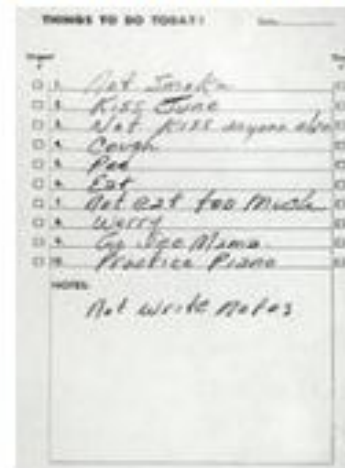 THINGS TO DO TODAY!
1. Not Smoke
2. Kiss June
3. Not Kiss anyone else
4. Cough
5. Pee
6. Eat
7. Not eat too much
8. Worry
9. Go See Mama
10. Practice Piano
NOTES:
Not write notes